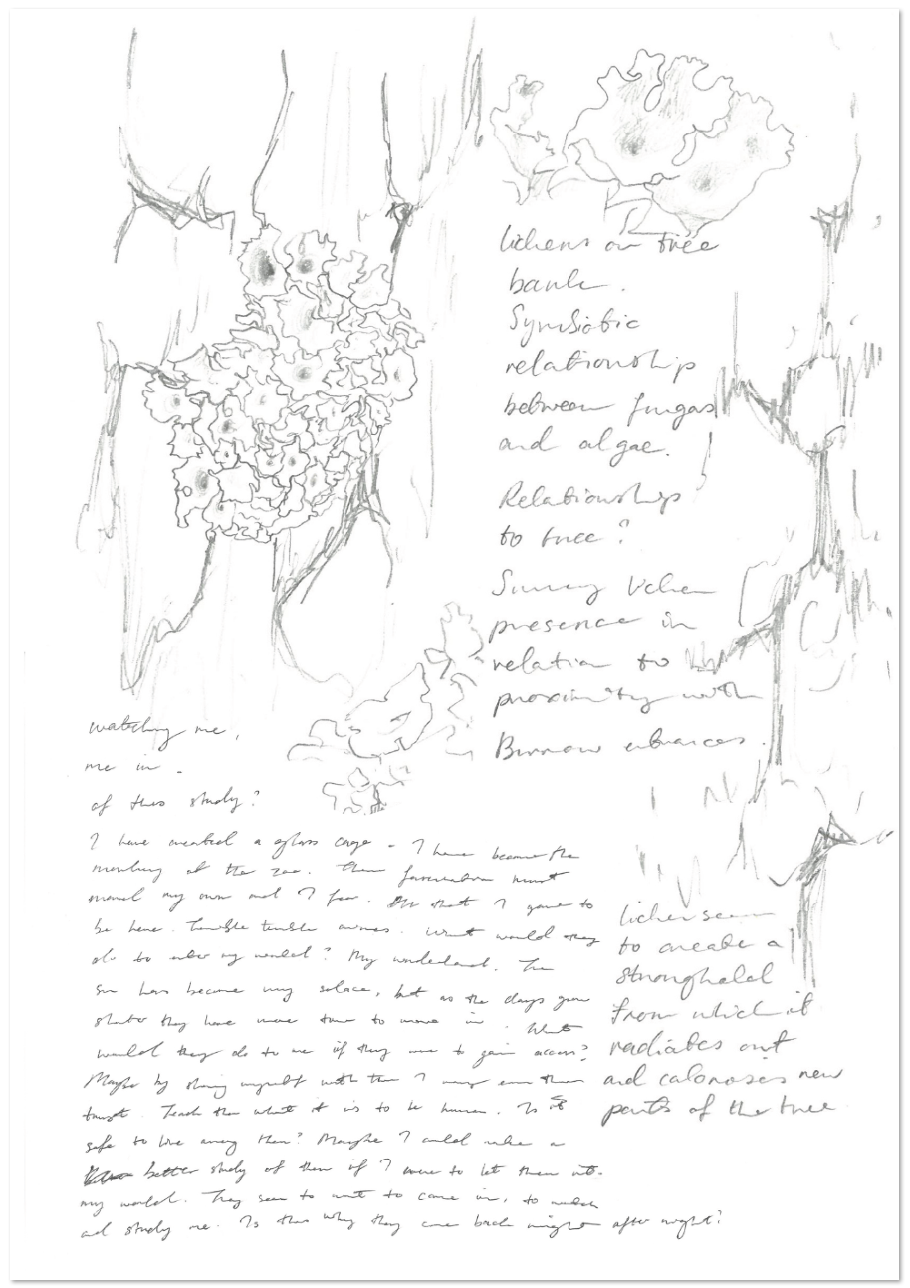 lichens on tree
bark.
Symbiotic
relationship
between fungas
and algae.
Relationship
to tree?
Survey lichen
presence in
relation to
proximity with
Burrow entrances.
watching me,
me in
of this study?
I have created a glass cage - I have become the
monkey at the zoo. Their fascination must
my own and I fear. that I gave to
be here. Terrible terrible noises. What would they
do to enter my world? My wonderland. The
sun has become my solace, but as the days grow
shorter they have more time to move in. What
would they do to me if they were to gain access?
Maybe by sharing myself with them I may earn their
trust. Teach them what it is to be human. Is it
safe to live among them? Maybe I could make a
better study of them if I were to let them into
my world. They seem to want to come in, to watch
and study me. Is this why they come back night after night?
lichen seem
to create a
stronghold
from which it
radiates out
and colonises new
parts of the tree